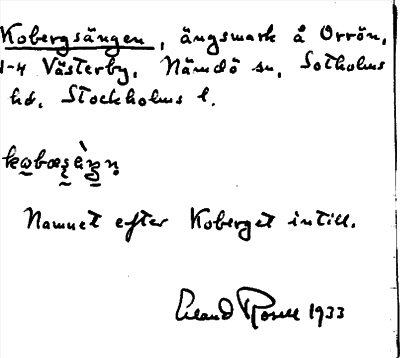 Kobergsängen, ängsmark å Orrön,
1-4 Västerby. Nämdö sn, Sotholms
hd. Stockholms l.
Namnet efter Koberget intill.
Erland Rosell 1933